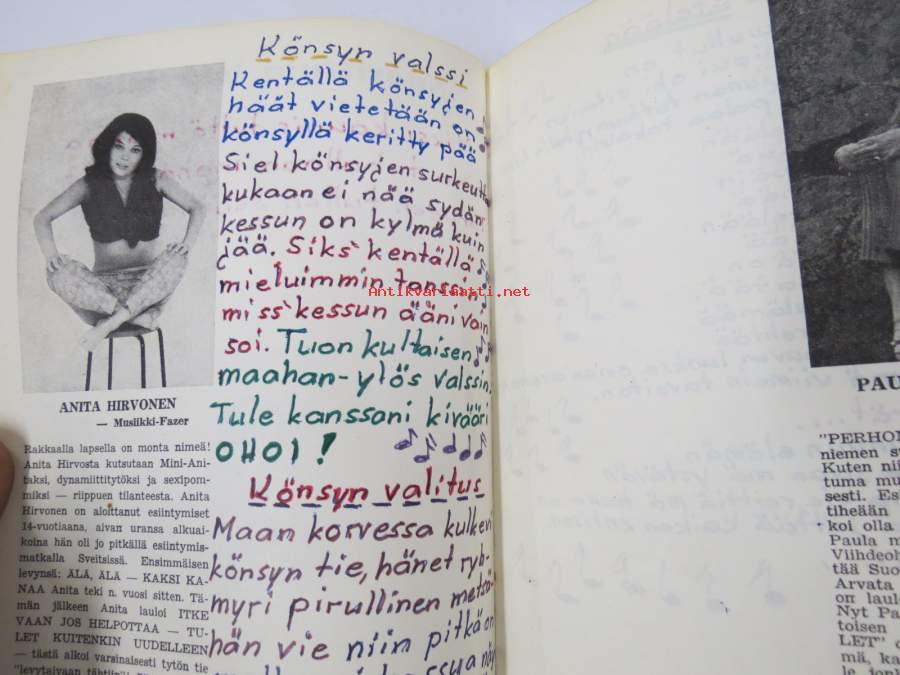 Könsyn valssi
Kentällä könsyjen
häät vietetään on
könsyllä keritty pää
Siel könsyjen surkeutta
kukaan ei nää sydän
kessun on kylmä kuin
jää. Siks kentällä
mieluimmin tanssin
miss kessun ääni vain
soi. Tuon kultaisen
maahan-ylös valssin.
Tule kanssani kivääri
OHOI!
Könsyn valitus
Maan korvessa kulkevi
könsyn tie, hänet ryh-
myri pirullinen metsä
hän vie niin pitkä on
ANITA HIRVONEN
— Musiikki-Fazer
Rakkaalla lapsella on monta nimeä!
Anita Hirvosta kutsutaan Mini-Ani-
taksi, dynamiittitytöksi ja sexipom-
miksi — riippuen tilanteesta. Anita
Hirvonen on aloittanut esiintymiset
14-vuotiaana, aivan uransa alkuai-
koina hän oli jo pitkällä esiintymis-
matkalla Sveitsissä. Ensimmäisen
levynsä: ÄLÄ, ÄLÄ — KAKSI KA-
NAA Anita teki n. vuosi sitten. Tä-
män jälkeen Anita lauloi ITKE
VAAN JOS HELPOTTAA — TU-
LET KUITENKIN UUDELLEEN
— tästä alkoi varsinaisesti tytön tie
"levytaivaan tähtiin"
Antikvariaatti.net
PAU
"PERHO
niemen s
Kuten nii
tuma mu
sesti. Es
tiheään
koi olla
Paula m
Viihdeoh
tää Suo
Arvata
on laule
Nyt Pa
toisen
LET" o
mä, ka
le jonk